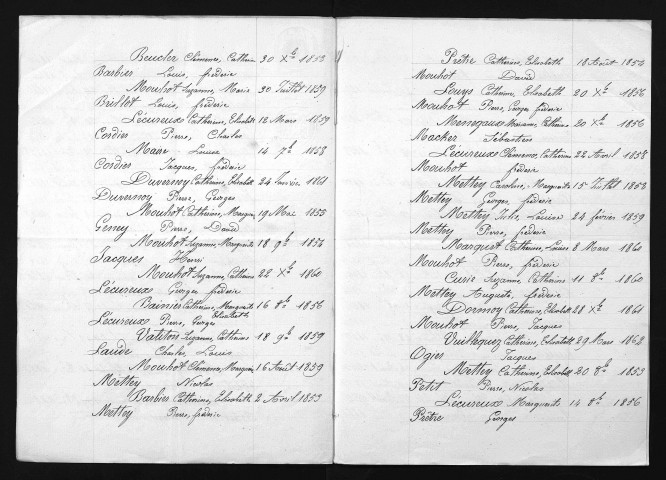 Beucler Clémence, Catherine 30 Xbre 1852
Barbier Louis, frédéric
Mouhot Suzanne, Marie 30 Juillet 1859
Brillet Louis, frédéric
Lécureux Catherine, Elisabeth 12 Mars 1859
Cordier Pierre, Charles
Marc Louise 14 7bre 1858
Cordier Jacques, frédéric
Duvernoy Catherine, Elisabeth 24 Janvier 1861
Duvernoy Pierre, Georges
Mouhot Catherine, Marguerite 19 Mars 1853
Geney Pierre, David
Mouhot Suzanne, Marguerite 18 9bre 1857
Jacques Henri
Mouhot Suzanne, Catherine 22 Xbre 1860
Lécureux Georges frédéric
Bainier Catherine, Marguerite 16 8bre 1856
Elisabeth
Lécureux Pierre, Georges
Vatiton Suzanne, Catherine 18 9bre 1859
Laude Charles, Louis
Mouhot Clémence, Marguerite 16 Août 1859
Mettey Nicolas
Barbier Catherine, Elisabeth 2 Avril 1853
Mettey Pierre, frédéric
Prêtre Catherine, Elisabeth 18 Août 1854
Mouhot David
Lourys Catherine, Elisabeth 20 Xbre 1856
Mouhot Pierre, Georges frédéric
Menegaux Marianne, Catherine 20 Xbre 1856
Macker Sébastien
Lécureux Clémence, Catherine 22 Avril 1858
Mouhot frédéric
Mettey Caroline, Marguerite 15 Juillet 1852
Mettey Georges, frédéric
Mettey Julie, Louise 24 février 1859
Mettey Pierre, frédéric
Marquet Catherine, Louise 8 Mars 1860
Mouhot Pierre, frédéric
Curie Suzanne, Catherine 11 8bre 1860
Mettey Auguste, frédéric
Dormoy Catherine, Elisabeth 28 Xbre 1861
Mouhot Pierre, Jacques
Vuillequez Catherine, Elisabeth 29 Mars 1862
Ogier Jacques
Mettey Catherine, Elisabeth 20 8bre 1853
Petit Pierre, Nicolas
Lécureux Marguerite 14 8bre 1856
Prêtre Georges